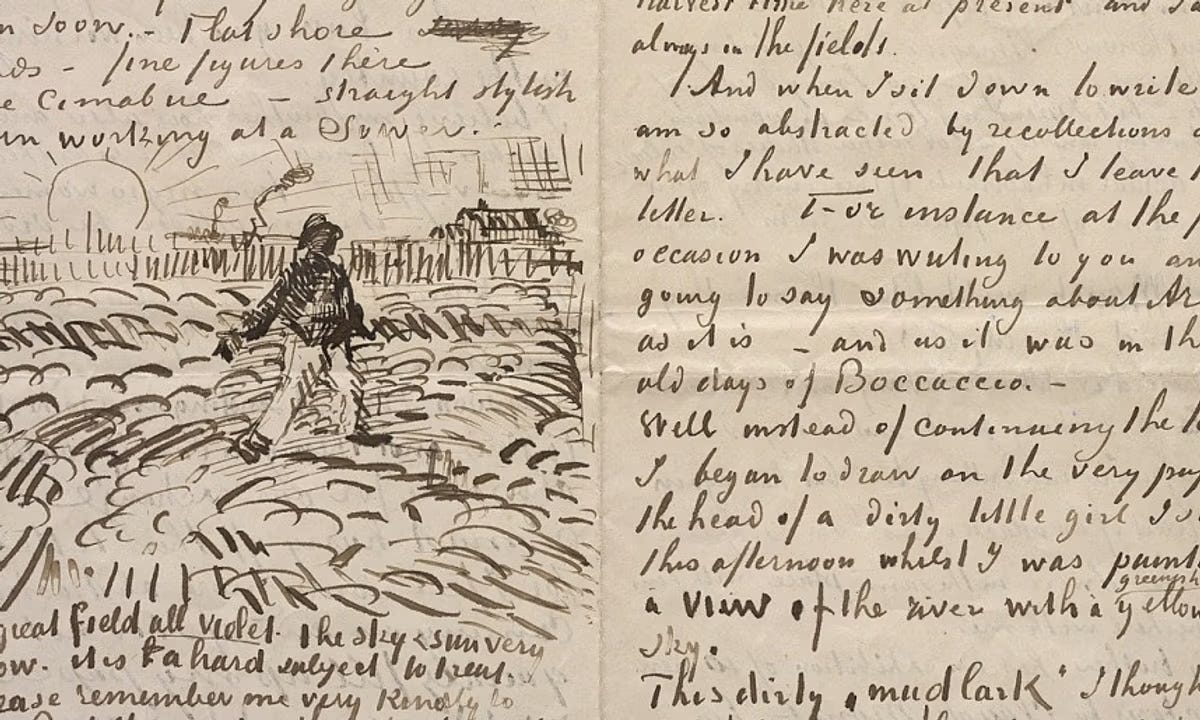 n soon. - That shore
ds - fine figures there
e Cimabue - straight stylish
m working at a Sower.
great field all violet. the sky & sun very
ow. it is a hard subject to treat.
ease remember me very kindly to
harvest time here at present and I a
always in the fields.
And when I sit down to write
am so abstracted by recollections o
what I have seen that I leave
letter. For instance at the p
occasion I was writing to you an
going to say something about Ar
as it is - and as it was in th
old days of Boccaccio. -
Well instead of continuing the le
I began to draw on the very pap
the head of a dirty little girl I s
this afternoon whilst I was paint
greenish
a view of the river with a yellow
sky.
This dirty "mudlark" I though